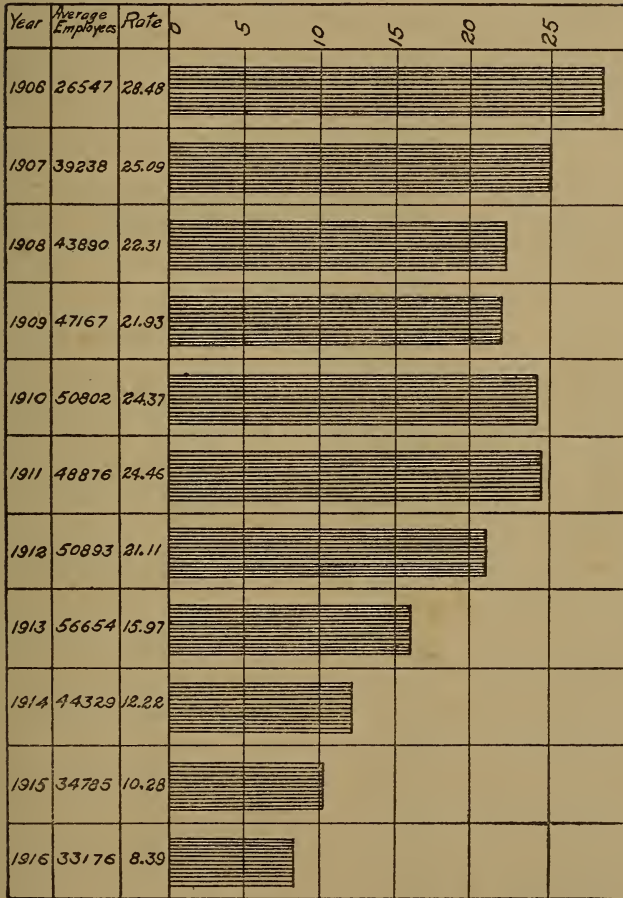 Year Average Employees Rate 0 5 10 15 20 25
1906 26547 28.48
1907 39238 25.09
1908 43890 22.31
1909 47167 21.93
1910 50802 24.37
1911 48876 24.46
1912 50893 21.11
1913 56654 15.97
1914 44329 12.22
1915 34785 10.28
1916 33176 8.39